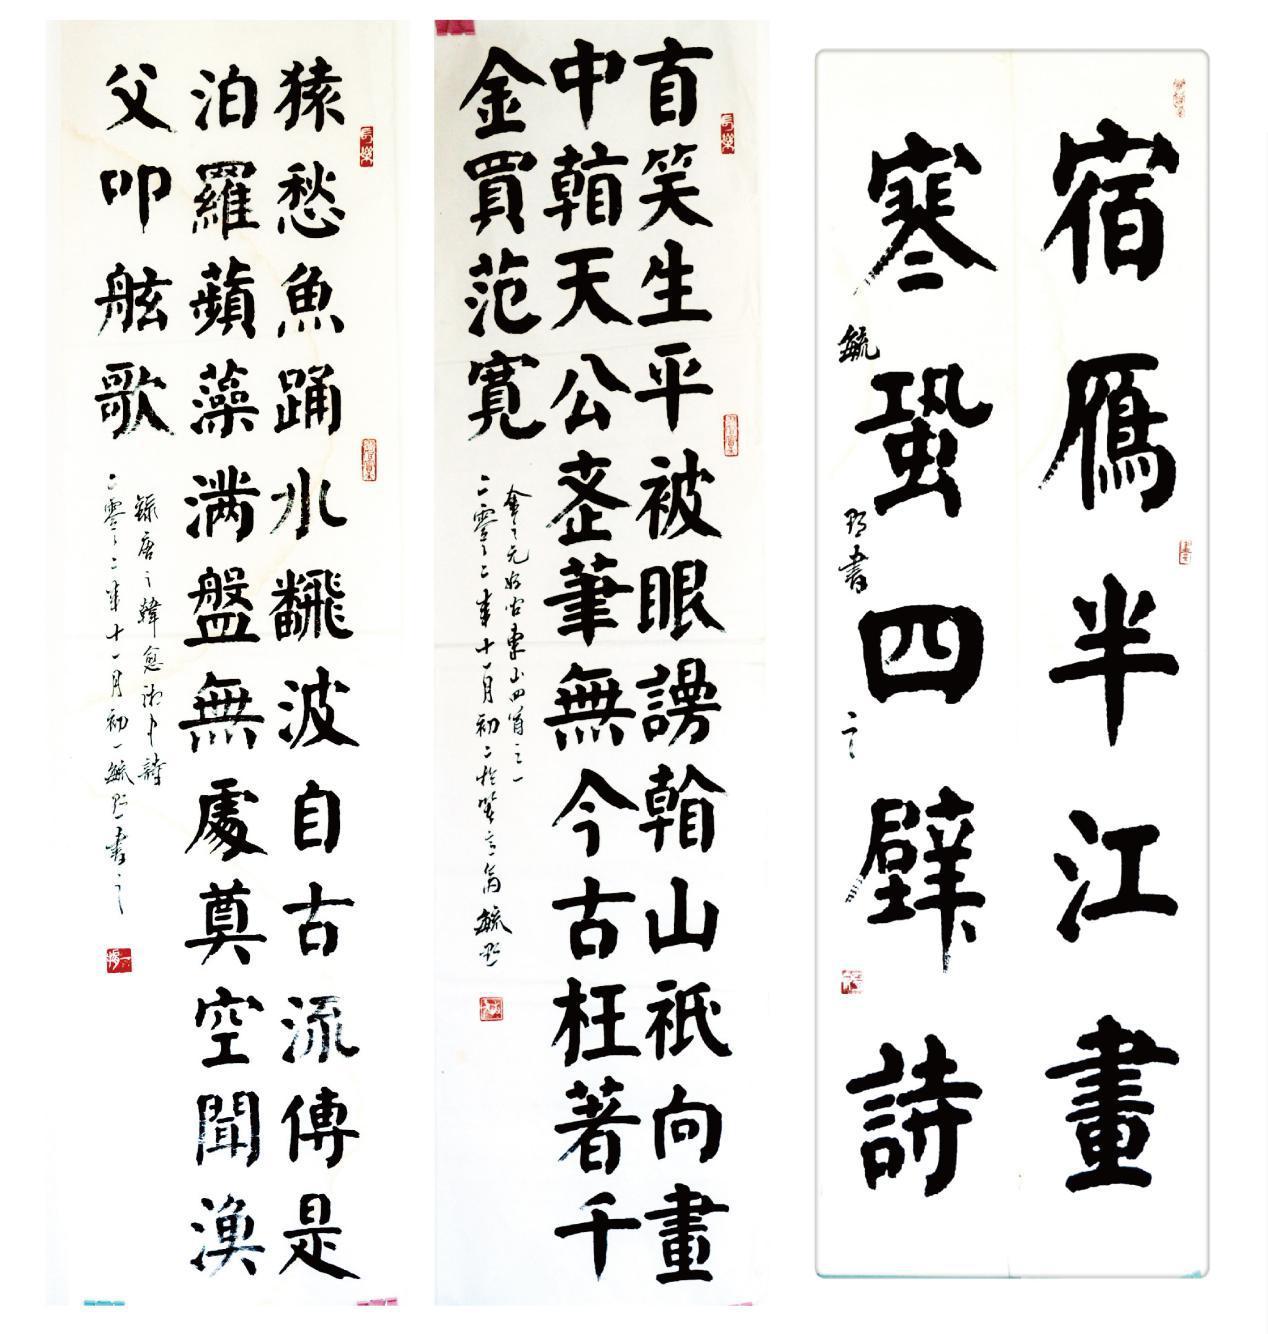 宿雁半江畫
寒蛩四壁詩
毓
書
自笑生平被眼謾看山祇向畫
中看天公老筆無今古枉著千
金買范寬
金元好問東山四首之一
二零二二年十一月初二於
毓
猿愁魚踊水翻波自古流傳是
汨羅蘋藻滿盤無處奠空聞漁
父叩舷歌
錄唐之韓愈湘中詩
二零二二年十一月初一毓
書之